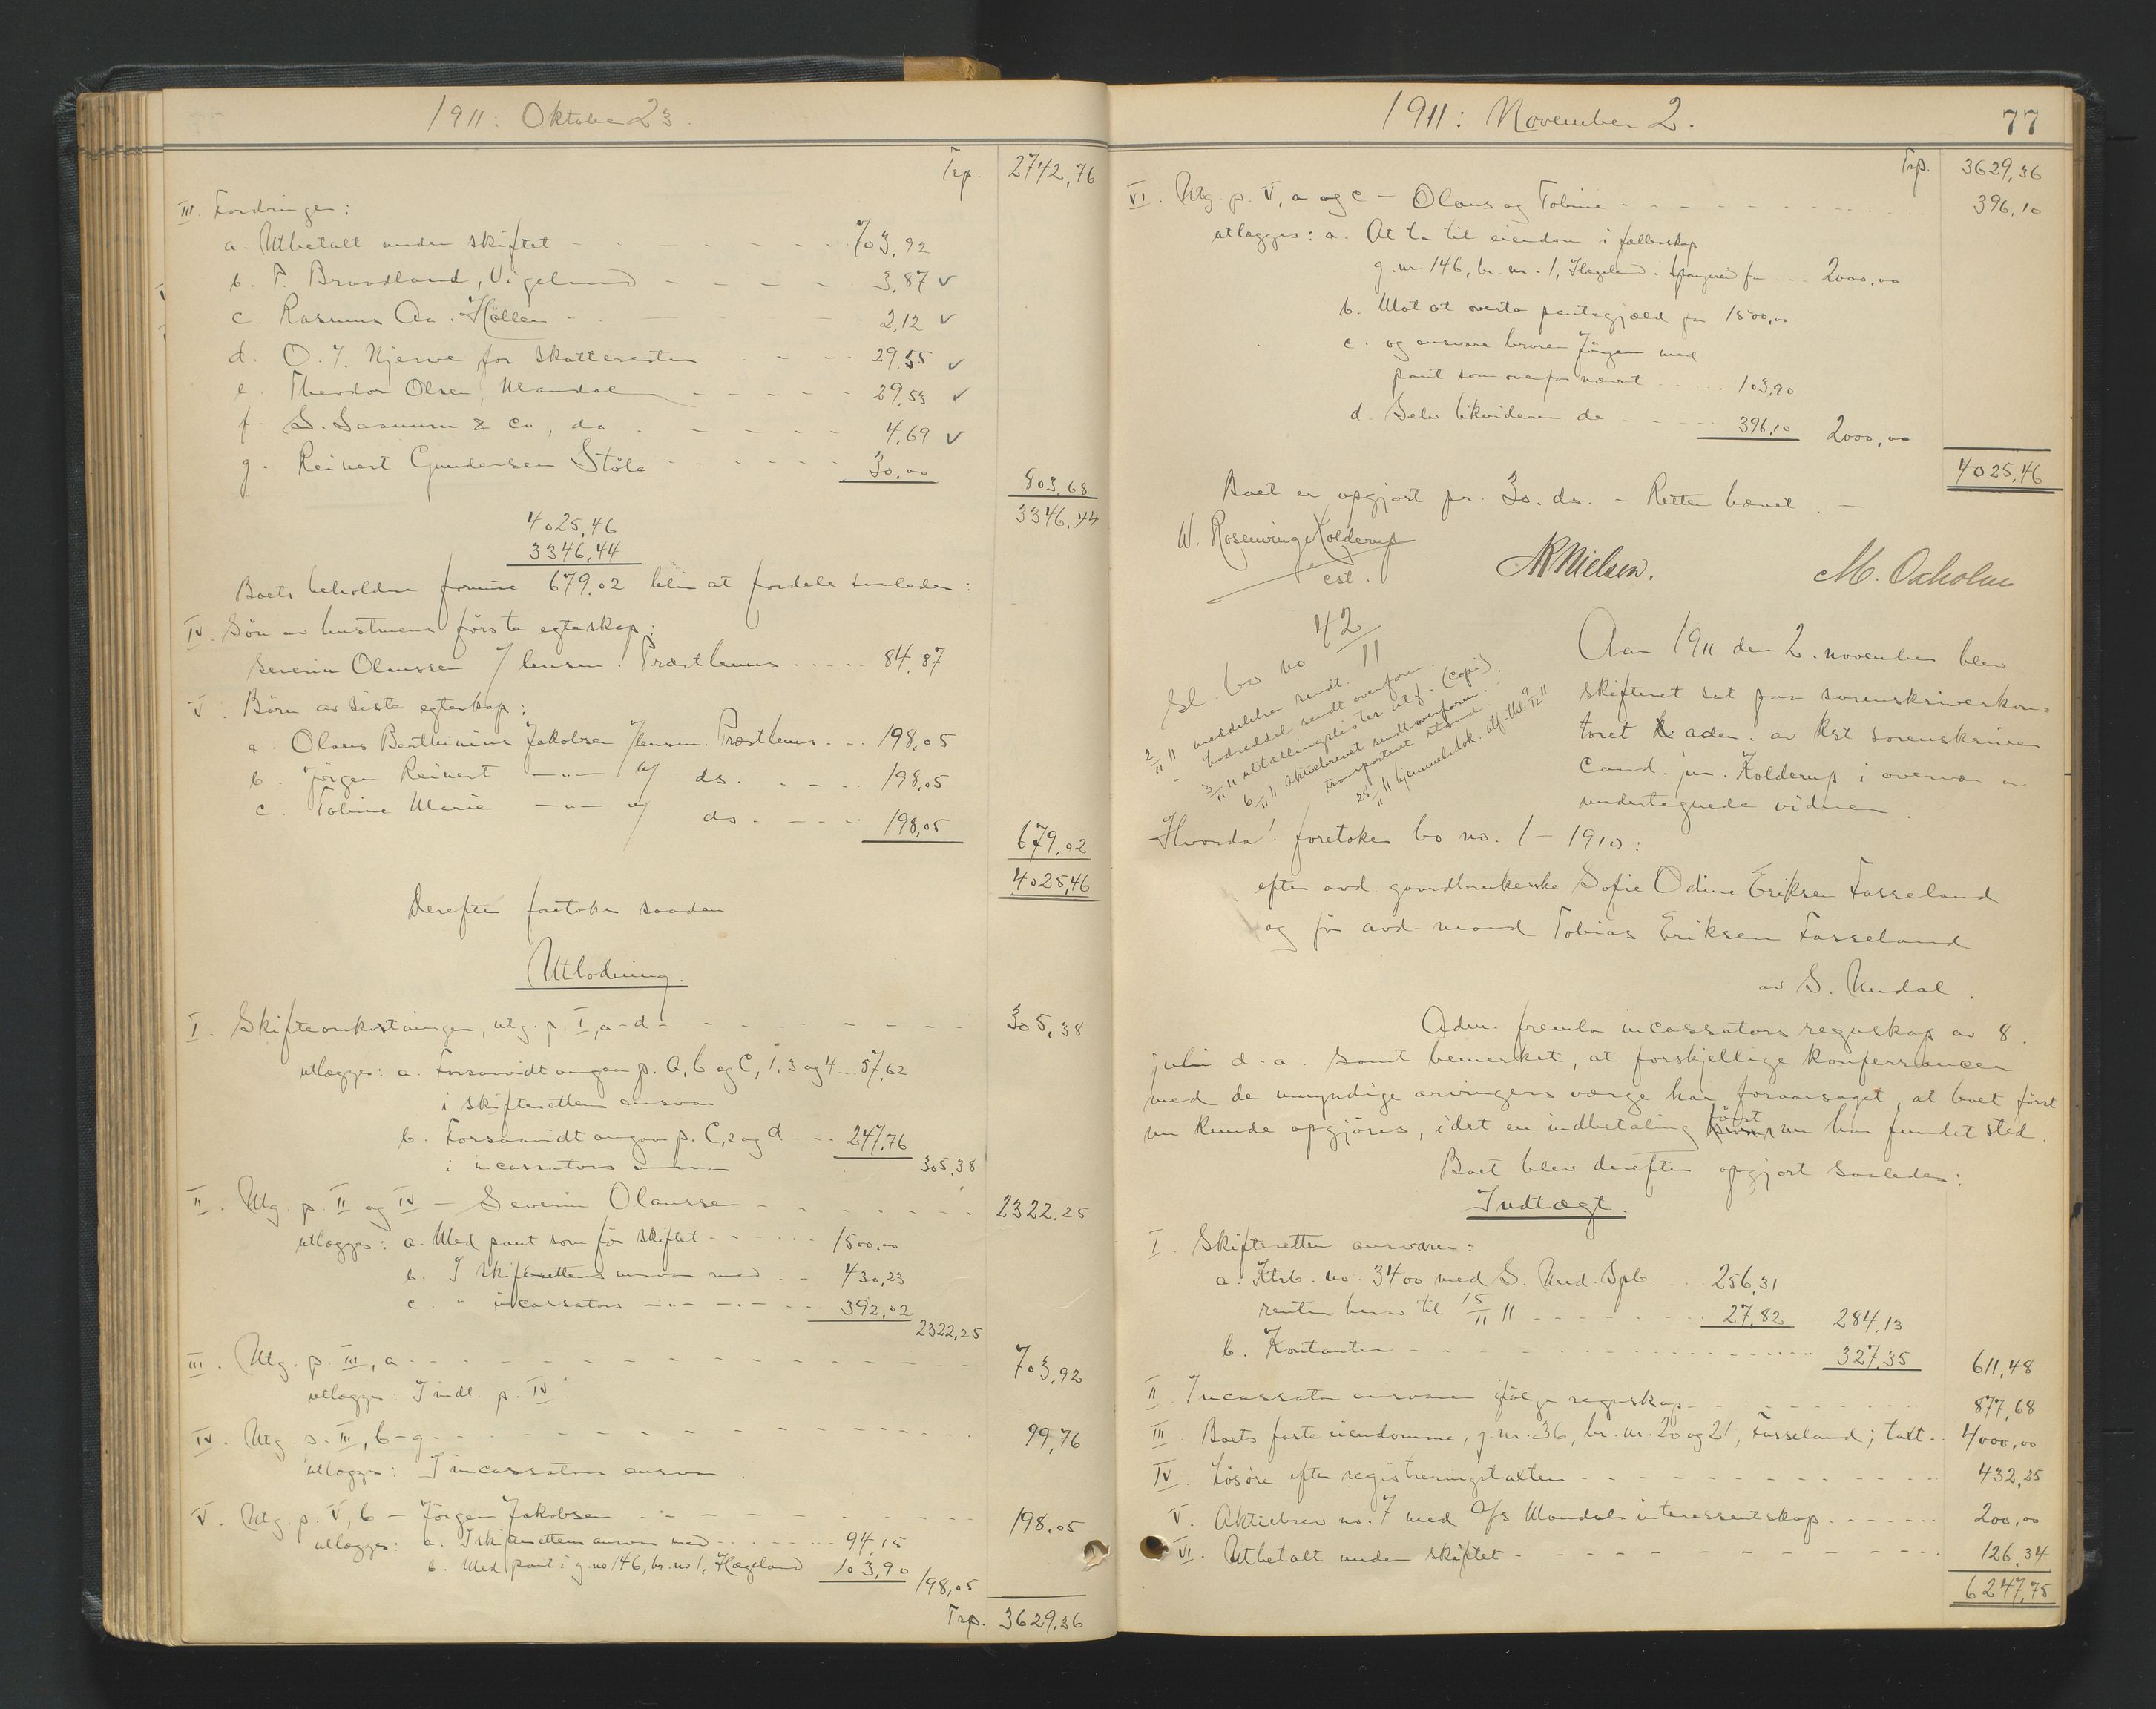 1911: Oktober 23.
Trp. 2742,76
III. Fordringer:
a. Utbetalt under skiftet - - - - 703,92
b. T. Brandland, Vigeland - - - - 3,87 v
c. Rasmus Aa. Höllen - - - 2,12 v
d. O. T. Njerve for skatterester - - - 29.55 v
e. Theodor Olsen, Mandal - - - - 29,53 v
f. S. Saanum & Co, do - - - - 4,69 v
g. Reinert Gundersen Stöle - - - - 30.00
803,68
3346,44
4025,46
3346,44
Boets beholdne formue 679,02 blir at fordele saaledes:
IV. Sön av hustruens första egteskap:
Severin Olaussen / hensm. Træstlemus ..... 84,87
V. Börn av siste egteskap:
a. Olaus Berthinius Jakobsen / hensm. Træstlemus ... 198,05
b. Jörgen Reinert —"— af ds. - - - 198,05
c. Tobine Marie —"— af ds. - - - 198,05
679,02
4025,46
Derefter foretokes saadan
Utlodning.
I. Skifteomkostninger, utg. p. I, a-d - - - - - - 305,38
utlægges: a. Forsaavidt angaar p. a, b og c, 1. 3 og 4 ... 57,62
i skifterettens ansvar
b. Forsaavidt angaar p. C, 2 og d - - - 247,76
i incassators ansvar 305,38
II. Utg. p. II og IV — Severin Olaussen - - - - - - 2322.25
utlægges: a. Med pant som för skiftet - - - - - 1500,00
b. I skifterettens ansvar med - - 430,23
c. " incassators —"— —"— - - 392,02
2322,25
III. Utg. p. III, a - - - - - - - - - 703,92
utlægges: Indt. p. IV.
IV. Utg. p. III, b-g - - - - - - - - 99,76
utlægges: I incassators ansvar.
V. Utg. p. V, b — Jörgen Jakobsen - - - - - - 198.05
utlægges: a. I skifterettens ansvar med - - - - - 94,15
b. Med pant i g. no 146, br. no 1, Hægeland 103,90 198,05
Trp. 3629,36
1911: November 2. 77
Trp. 3629,36
VI. Utg. p. V, a og c — Olaus og Tobine - - - - - - 396,10
utlægges: a. At ta til eiendom i fællesskap
g. nr 146, br. nr. 1, Hægeland i for ... 2000,00
b. Mot at overta pantegjæld for 1500,00
c. og ansvare broren Jörgen med
pant som ovenfor nævnt ..... 103,90
d. Selv likviderer de - - - 396,10 2000,00
4025,46
Boet er opgjort pr. 30. ds. — Retten hævet. —
W. Rosenvinge Kolderup
cst.
NNielsen. M. Oxholm
Sl. bo no 42/11
2/11 11 meddelelse sendt.
" lodseddel sendt overform.
3/11 11 utlællingslister utf. (copi).
6/11 11 aktiebrevet sendt overform.
transportert istand.
28/11 11 hjemmelsdok. utf. thl. 9/12 11
Aar 1911 den 2. november blev
skifteret sat paa sorenskriverkon=
toret adm. av kst sorenskriver
cand. jur. Kolderup i overvær av
undertegnede vidner.
Hvorda! foretokes bo no. 1 — 1910:
efter avd. gaardbrukerske Sofie Odine Eriksen Fasseland
og før avd. mand Tobias Eriksen Fasseland
av S. Undal.
Adm. fremla incassators regnskap av 8.
juli d. a. samt bemerket, at forskjellige konferrancer
med de umyndige arvingers værge har foraarsaget, at boet först
nu kunde opgjöres, idet en indbetaling först nu har fundet sted.
Boet blev derefter opgjort saaledes:
Indtægt.
I. Skifteretten ansvarer:
a. Ktrb. no. 3400 med S. Und. Spb. ... 256,31
renter herav til 15/11 11 - - - - - 27,82 284,13
b. Kontanter - - - - - - 327,35 611,48
II. Incassator ansvarer ifölge regnskap - - - - - 877,68
III. Boets faste eiendomme, g. nr. 36, br. nr. 20 og 21, Fasseland; taxt.. 4000,00
IV. Lösöre efter registreringstaxten - - - - - - 432,25
V. Aktiebrev no. 7 med A/s Mandals interessentskap - - - - 200,00
VI. Utbetalt under skiftet - - - - - - - - 126,34
6247,75